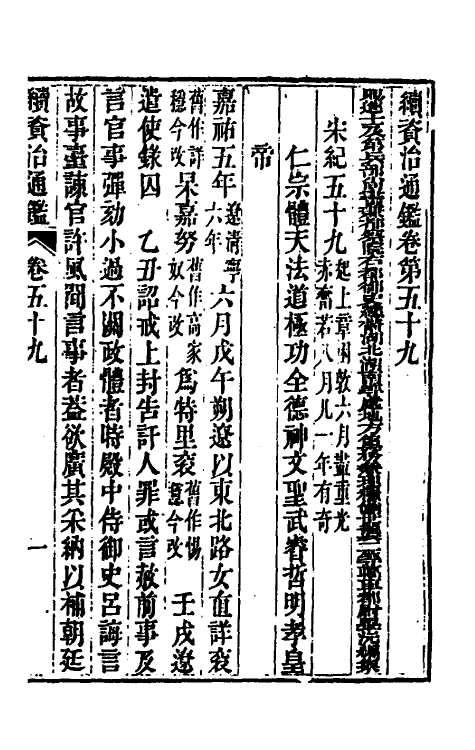 續資治通鑑卷第五十九
宋紀五十九起上章困敦六月盡重光赤奮若八月凡一年有奇
仁宗體天法道極功全德神文聖武睿哲明孝皇
帝
嘉祐五年遼清寧六年六月戊午朔遼以東北路女直詳袞
舊作詳穩今改杲嘉努舊作高家奴今改爲特里袞舊作惕隱今改 壬戌遼
遣使錄囚 乙丑詔戒上封告訐人罪或言赦前事及
言官事彈劾小過不關政體者時殿中侍御史呂誨言
故事臺諫官許風聞言事者蓋欲廣其采納以補朝廷
續資治通鑑 卷五十九 一